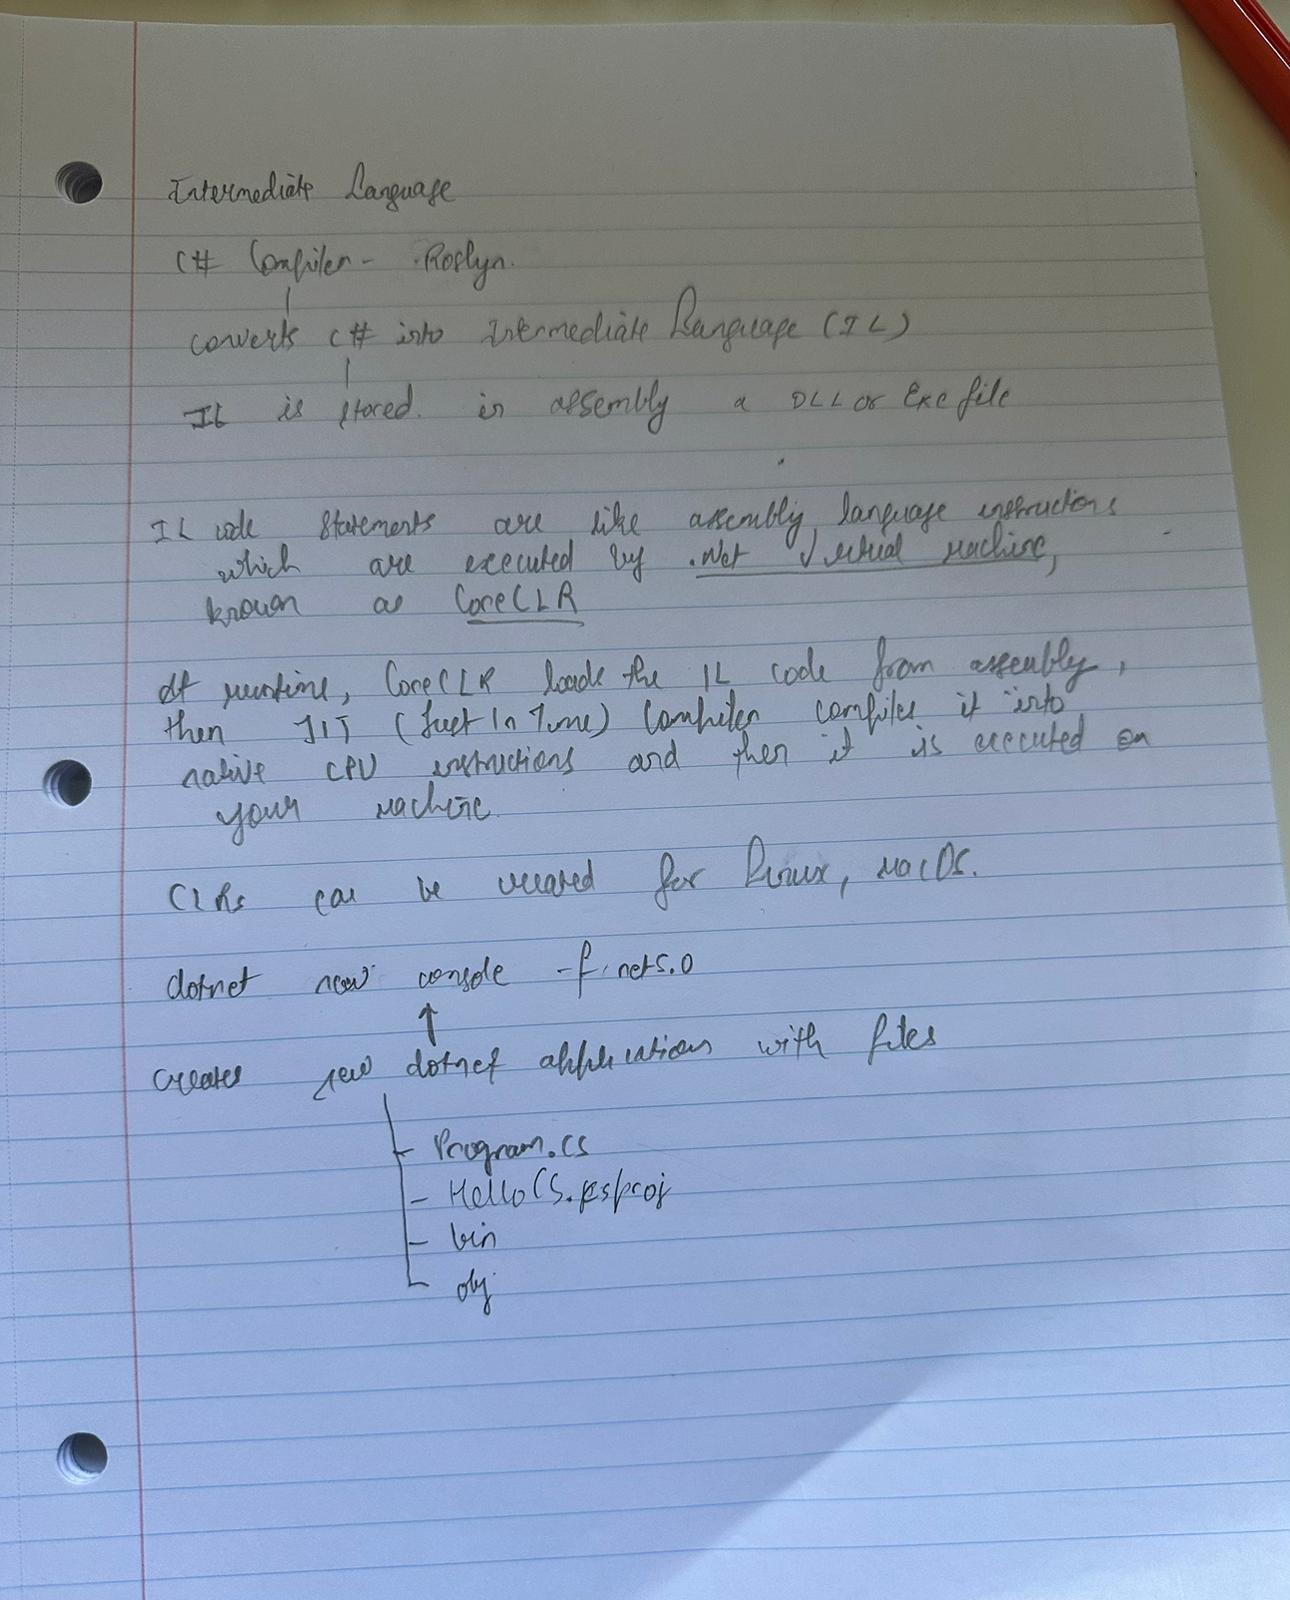 Intermediate Language
C# Compiler - Roslyn.
converts C# into Intermediate Language (IL)
IL is stored in assembly a DLL or Exe file
IL code statements are like assembly language instructions
which are executed by .Net Virtual Machine,
known as CoreCLR
At runtime, CoreCLR loads the IL code from assembly,
then JIT (Just In Time) Compiler compiles it into
native CPU instructions and then it is executed on
your machine.
CLRs can be created for Linux, MacOS.
dotnet new console -f net5.0
creates new dotnet application with files
Program.cs
HelloCS.csproj
bin
obj